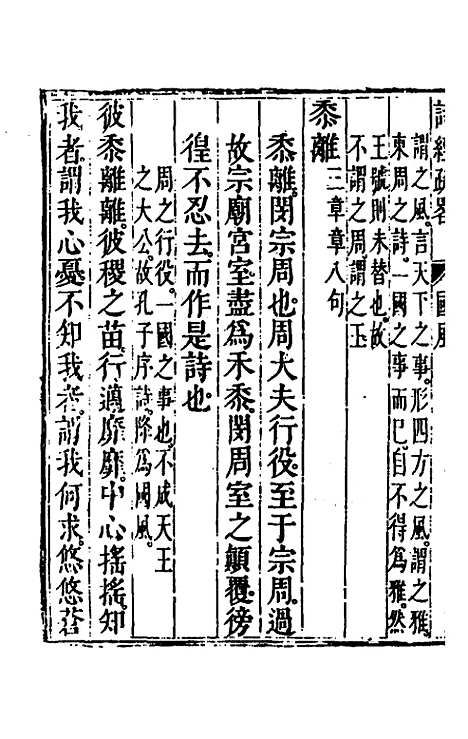 詩經疏畧 國風
謂之風言天下之事形四方之風謂之雅
東周之詩一國之事而已自不得爲雅然
王號則未替也故
不謂之周謂之王
黍離三章章八句
黍離閔宗周也周大夫行役至于宗周過
故宗廟宮室盡爲禾黍閔周室之顛覆徬
徨不忍去而作是詩也
周之行役一國之事也不成天王
之大公故孔子序詩降為國風
彼黍離離彼稷之苗行邁靡靡中心搖搖知
我者謂我心憂不知我者謂我何求悠悠蒼